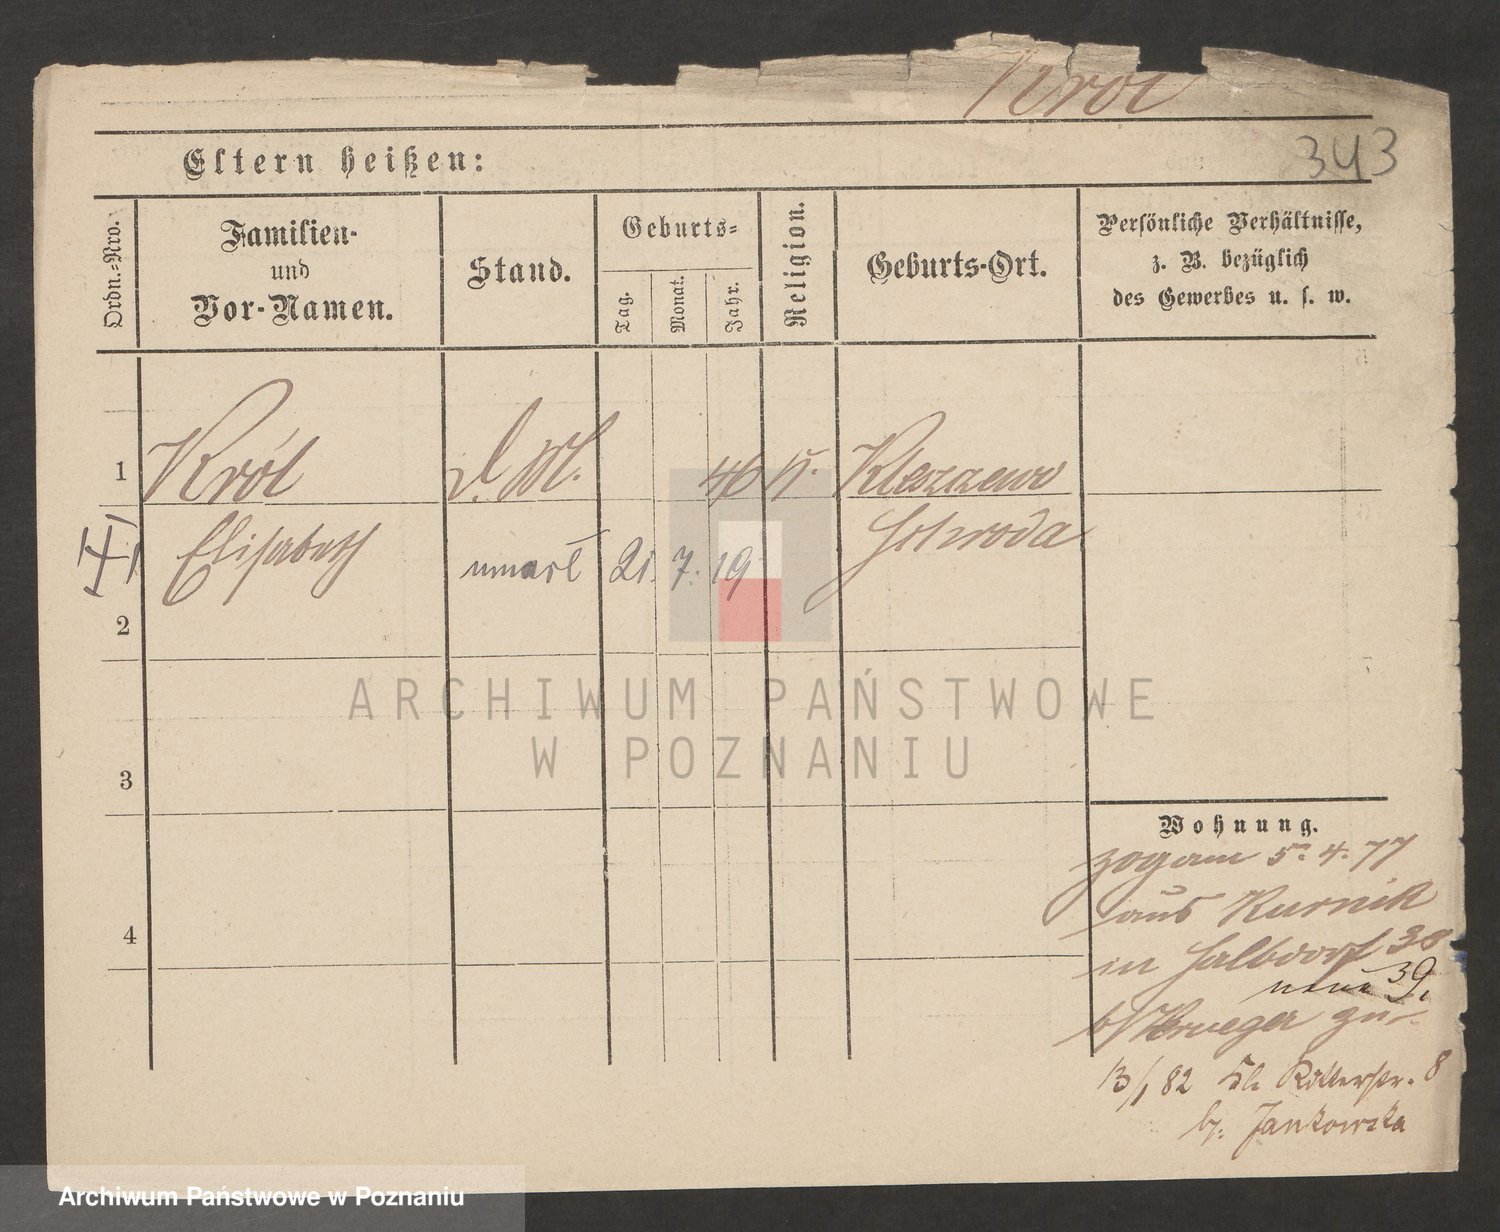 Król
343
Eltern heißen:
Ordn.-Nro.
Familien-
und
Vor-Namen.
Stand.
Geburts-
Tag.
Monat.
Jahr.
Religion.
Geburts-Ort.
Persönliche Verhältnisse,
z. B. bezüglich
des Gewerbes u. s. w.
1
Król
d. M.
46
k.
Kleszzewo
Elisabeth
Schroda
umarł 21. 7. 19
2
ARCHIWUM PAŃSTWOWE
W POZNANIU
3
Wohnung.
zog am 5. 4. 77
aus Kurnik
4
in Halbdorf 38
neue 39.
b/ Krueger zu
13/1 82 Kl. Ritterstr. 8
b. Jankowska
Archiwum Państwowe w Poznaniu